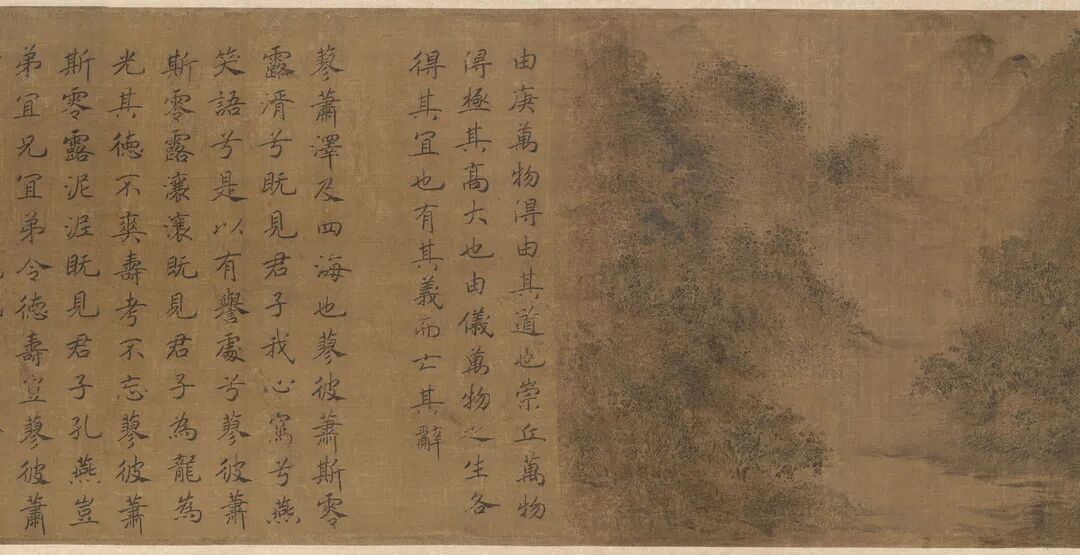 由庚萬物得由其道也崇丘萬物
得極其高大也由儀萬物之生各
得其宜也有其義而亡其辭
蓼蕭澤及四海也蓼彼蕭斯零
露湑兮既見君子我心寫兮燕
笑語兮是以有譽處兮蓼彼蕭
斯零露瀼瀼既見君子為龍為
光其德不爽壽考不忘蓼彼蕭
斯零露泥泥既見君子孔燕豈
弟宜兄宜弟令德壽豈蓼彼蕭